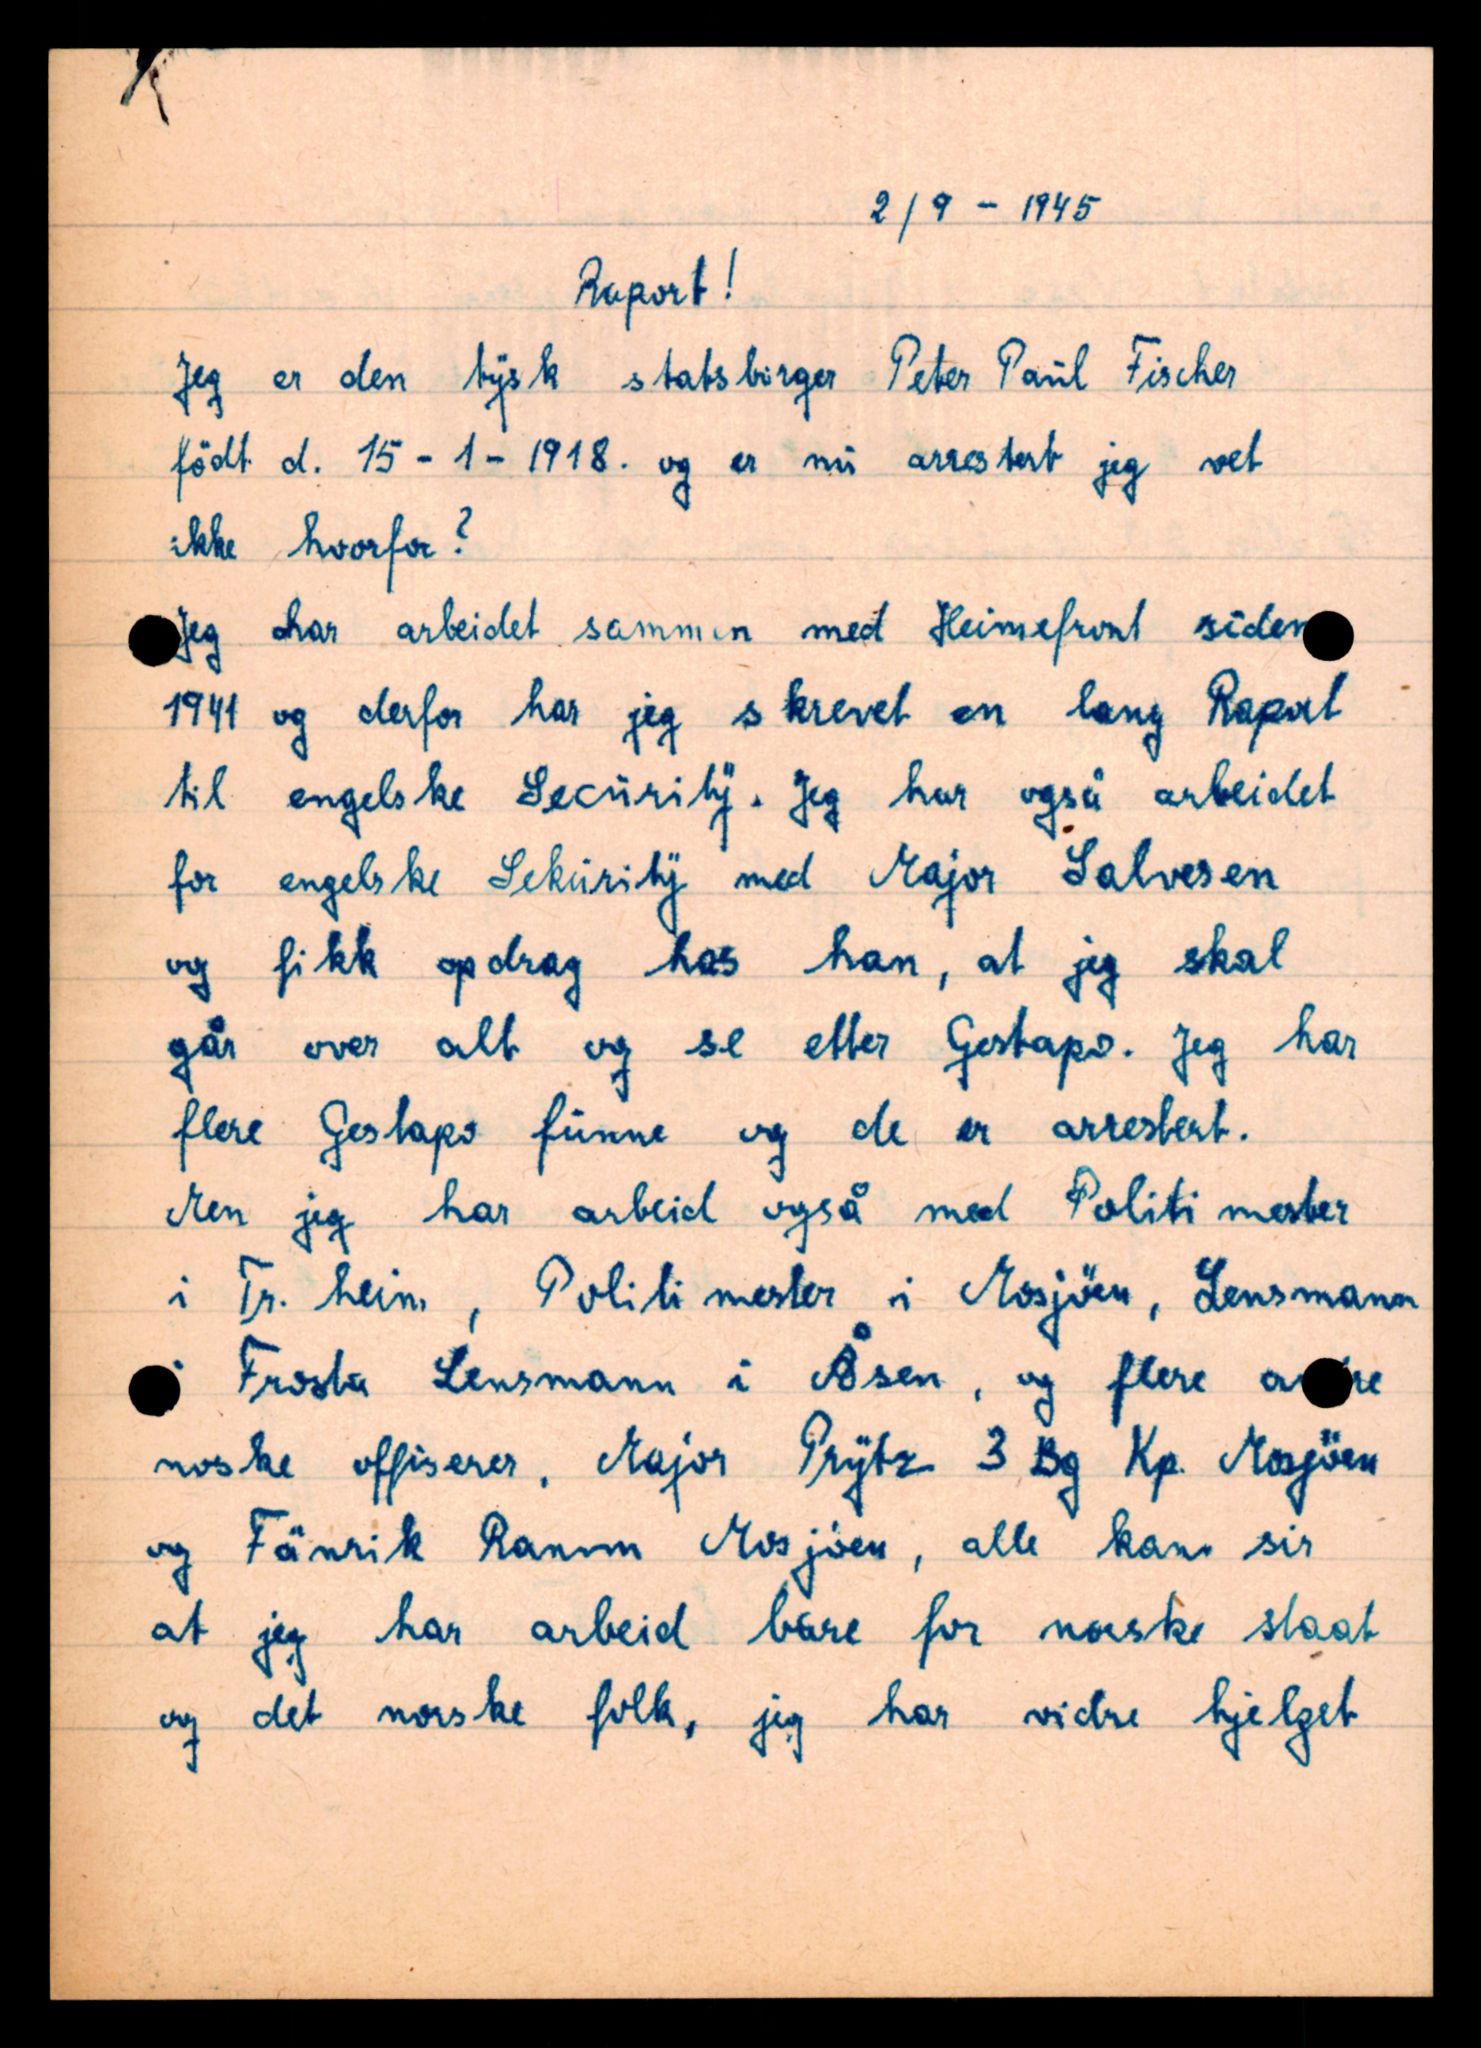 2/9 - 1945
Raport!
Jeg er den tÿsk statsbürger Peter Paŭl Fischer
födt d. 15 - 1 - 1918. og er nŭ arrestert jeg vet
ikke hvorfor?
Jeg har arbeidet sammen med Heimefront siden
1941 og derfor har jeg skrevet en lang Raport
til engelske Secŭritÿ. Jeg har også arbeidet
for engelske Sekŭritÿ med Major Salvesen
og fikk opdrag hos han, at jeg skal
går over alt og se etter Gestapo. Jeg har
flere Gestapo fŭnne og de er arrestert.
Men jeg har arbeid også med Politi mester
i Tr. heim, Politi mester i Mosjöen, Lensmann
i Frosta Lensmann i Åsen, og flere andre
noske offiserer, Major Prÿtz 3 Bg Kp. Mosjöen
og Fänrik Ranum Mosjöen, alle kan sir
at jeg har arbeid bare for norske staat
og det norske folk, jeg har vidre hjelpet